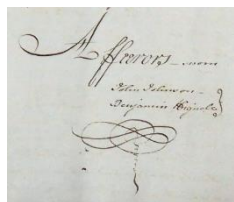 Affeerors – sworn
John Johnson –
Benjamin